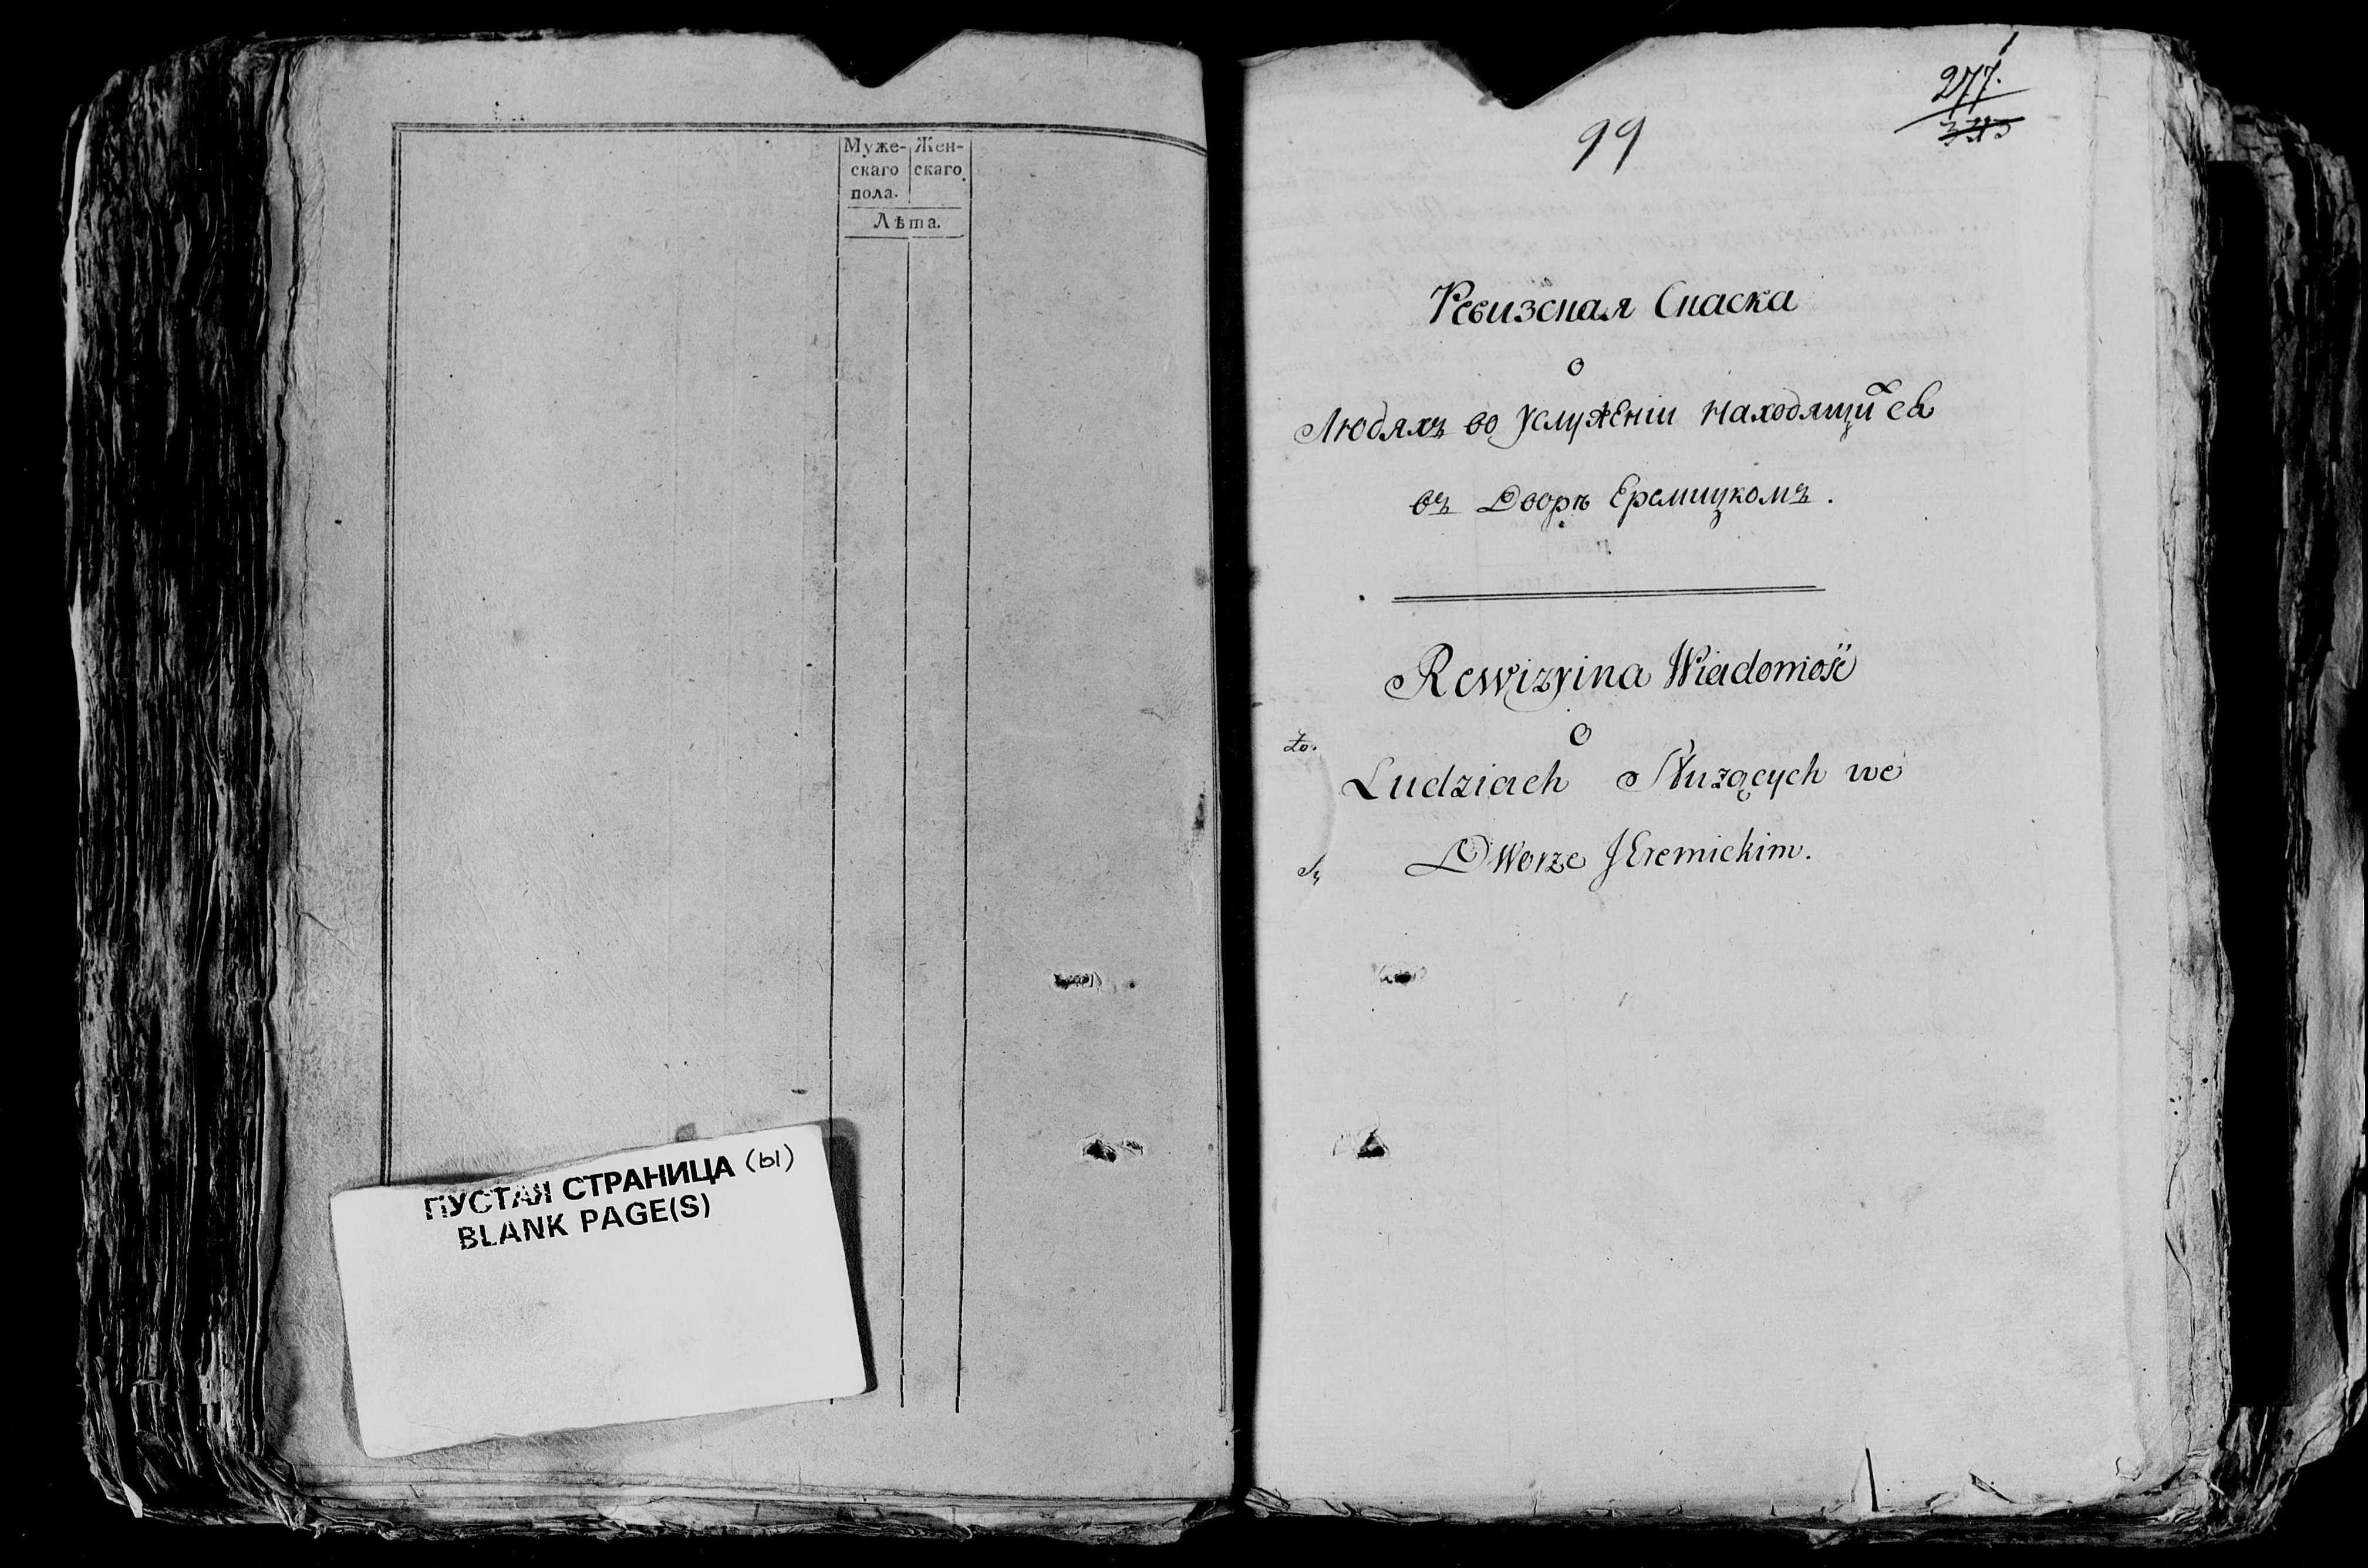 Муже- Жен-
скаго скаго
пола.
Лѣта.
ПУСТАЯ СТРАНИЦА (ы)
BLANK PAGE(S)
277.
99
Ревизсная Снаска
о
Людяхъ во услуженіи находящихся
въ Дворѣ Еремицкомъ.
Rewizyina Wiadomość
O
Ludziach Służących we
Dworze JEremickim.